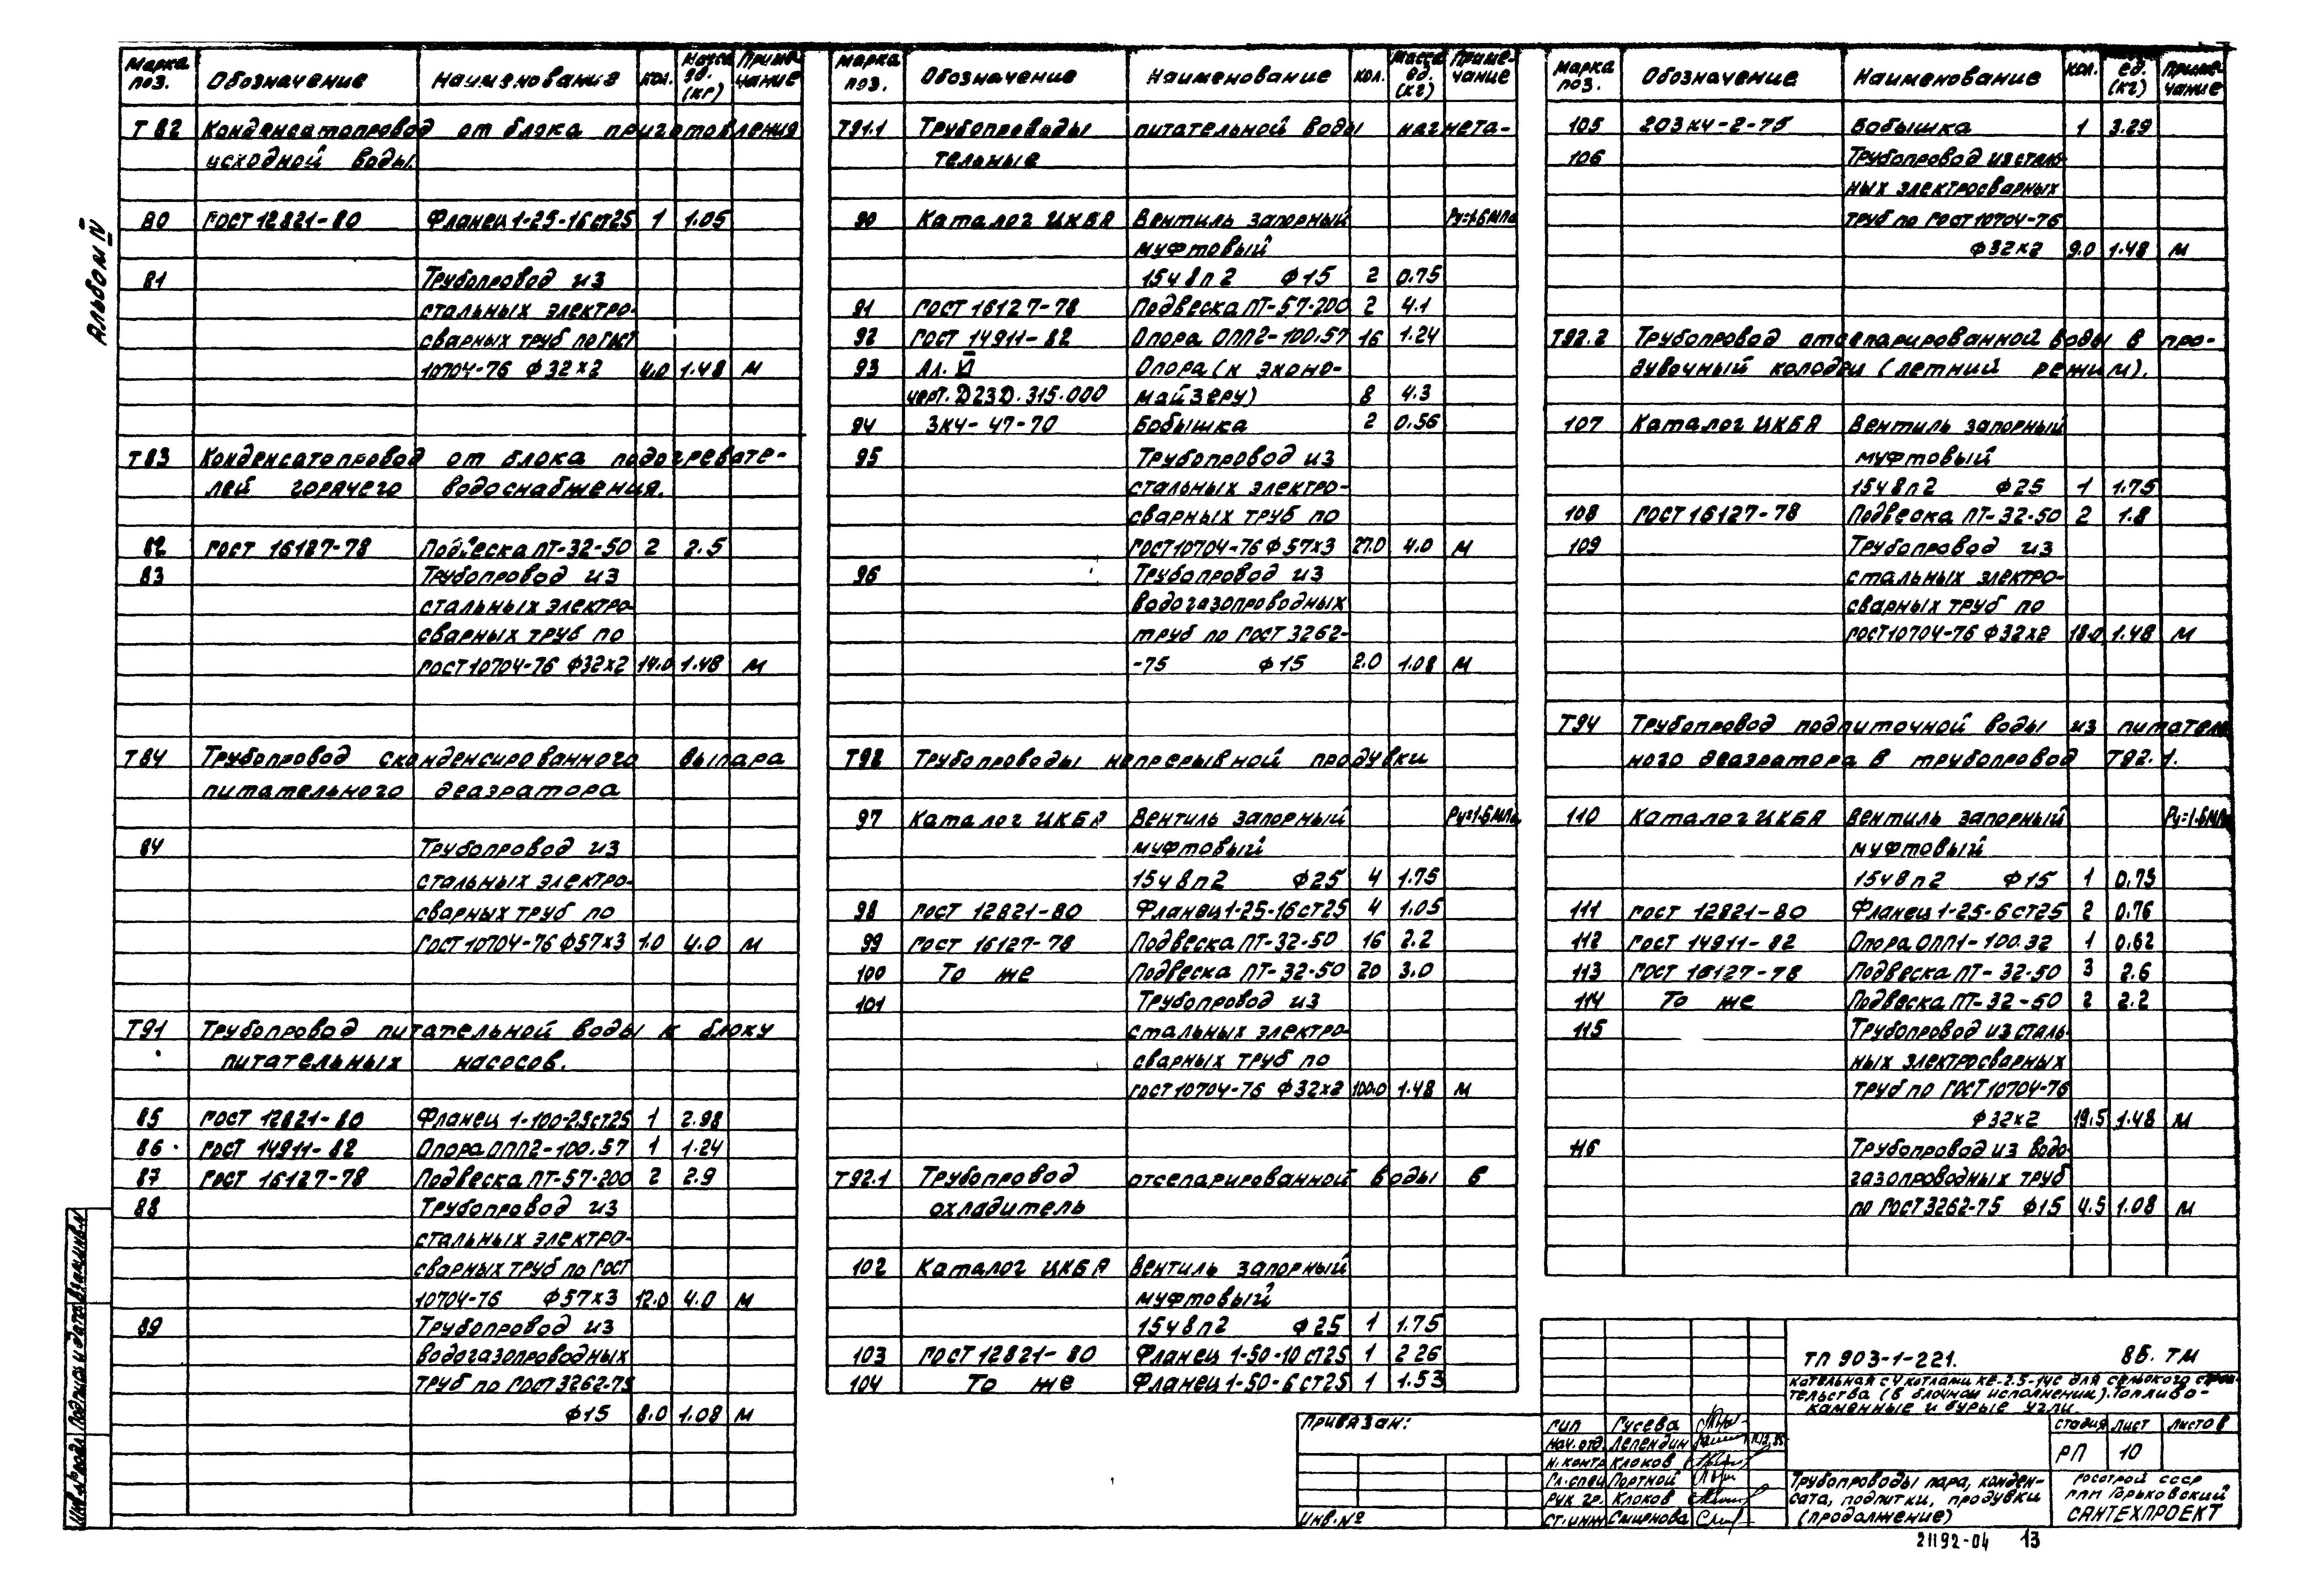 Альбом IV
Марка поз. Обозначение Наименование кол. Масса ед. (кг) Приме-чание
Т82 Конденсатопровод от блока приготовления
исходной воды.
80 ГОСТ 12821-80 Фланец 1-25-16 ст25 1 1.05
81 Трубопровод из
стальных электро-
сварных труб по ГОСТ
10704-76 ф32х2 4.0 1.48 м
Т83 Конденсатопровод от блока подогревате-
лей горячего водоснабжения.
82 ГОСТ 16127-78 Подвеска ПТ-32-50 2 2.5
83 Трубопровод из
стальных электро-
сварных труб по
ГОСТ 10704-76 ф32х2 14.0 1.48 м
Т84 Трубопровод сконденсированного выпара
питательного деаэратора
84 Трубопровод из
стальных электро-
сварных труб по
ГОСТ 10704-76 ф57х3 1.0 4.0 м
Т91 Трубопровод питательной воды к блоку
питательных насосов.
85 ГОСТ 12821-80 Фланец 1-100-2.5 ст.25 1 2.98
86 ГОСТ 14911-82 Опора ОПП2-100.57 1 1.24
87 ГОСТ 16127-78 Подвеска ПТ-57-200 2 2.9
88 Трубопровод из
стальных электро-
сварных труб по ГОСТ
10704-76 ф57х3 12.0 4.0 м
89 Трубопровод из
водогазопроводных
труб по ГОСТ 3262-75
ф15 8.0 1.08 м
Марка поз. Обозначение Наименование кол. Масса ед. (кг) Приме-чание
Т91.1 Трубопроводы питательной воды нагнета-
тельные
90 Каталог ЦКБА Вентиль запорный Ру=1.6 МПа
муфтовый
15ч8п2 ф15 2 0.75
91 ГОСТ 16127-78 Подвеска ПТ-57-200 2 4.1
92 ГОСТ 14911-82 Опора ОПП2-100.57 16 1.24
93 Ал. VI Опора (к эконо-
черт. D23D.315.000 майзеру) 8 4.3
94 ЗК4-47-70 Бобышка 2 0.56
95 Трубопровод из
стальных электро-
сварных труб по
ГОСТ 10704-76 ф57х3 27.0 4.0 м
96 Трубопровод из
водогазопроводных
труб по ГОСТ 3262-
-75 ф15 2.0 1.08 м
Т92 Трубопроводы непрерывной продувки
97 Каталог ЦКБА Вентиль запорный Ру=1.6 МПа
муфтовый
15ч8п2 ф25 4 1.75
98 ГОСТ 12821-80 Фланец 1-25-16 ст25 4 1.05
99 ГОСТ 16127-78 Подвеска ПТ-32-50 16 2.2
100 То же Подвеска ПТ-32-50 20 3.0
101 Трубопровод из
стальных электро-
сварных труб по
ГОСТ 10704-76 ф32х2 100.0 1.48 м
Т92.1 Трубопровод отсепарированной воды в
охладитель
102 Каталог ЦКБА Вентиль запорный
муфтовый
15ч8п2 ф25 1 1.75
103 ГОСТ 12821-80 Фланец 1-50-10 ст25 1 2 26
104 То же Фланец 1-50-6 ст25 1 1.53
Марка поз. Обозначение Наименование кол. ед. (кг) Приме-чание
105 203К4-2-75 Бобышка 1 3.29
106 Трубопровод из сталь-
ных электросварных
труб по ГОСТ 10704-76
ф32х2 9.0 1.48 м
Т92.2 Трубопровод отсепарированной воды в про-
дувочный колодец (летний режим).
107 Каталог ЦКБА Вентиль запорный
муфтовый
15ч8п2 ф25 1 1.75
108 ГОСТ 16127-78 Подвеска ПТ-32-50 2 1.8
109 Трубопровод из
стальных электро-
сварных труб по
ГОСТ 10704-76 ф32х2 18.0 1.48 м
Т94 Трубопровод подпиточной воды из питатель
ного деаэратора в трубопровод Т92.1.
110 Каталог ЦКБА Вентиль запорный Ру=1.6 МПа
муфтовый
15ч8п2 ф15 1 0.75
111 ГОСТ 12821-80 Фланец 1-25-6 ст25 2 0.76
112 ГОСТ 14911-82 Опора ОПП1-100.32 1 0.62
113 ГОСТ 16127-78 Подвеска ПТ-32-50 3 2.6
114 То же Подвеска ПТ-32-50 2 2.2
115 Трубопровод из сталь-
ных электросварных
труб по ГОСТ 10704-76
ф32х2 19.5 1.48 м
116 Трубопровод из водо-
газопроводных труб
по ГОСТ 3262-75 ф15 4.5 1.08 м
Инв.№подл. Подпись и дата Взам.инв.№
Привязан:
Инв.№
ГИП Гусева
Нач.отд. Лепендин
Н.контр Клоков
Гл.спец Портной
Рук.гр. Клоков
Ст.инж Смирнова
ТП 903-1-221. 86. ТМ
Котельная с 4 котлами КЕ-2.5-14С для сельского строи-
тельства (в блочном исполнении). Топливо-
каменные и бурые угли.
стадия лист листов
РП 10
Трубопроводы пара, конден-
сата, подпитки, продувки
(продолжение)
Госстрой СССР
ГПИ Горьковский
САНТЕХПРОЕКТ
21192-04 13